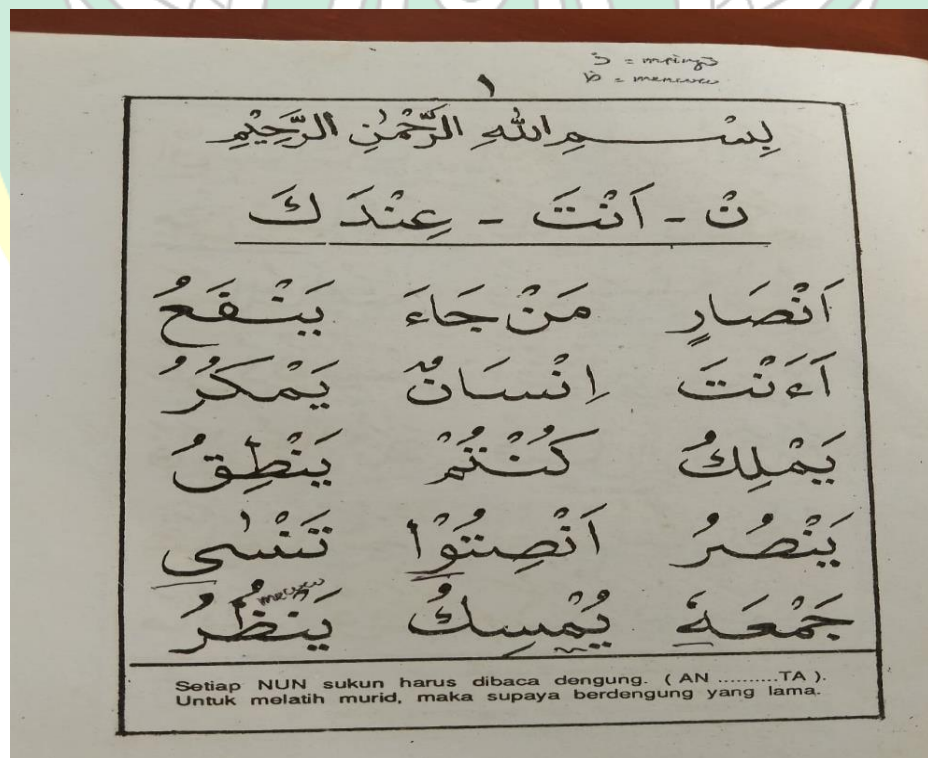 ز = mringis
ظ = mencucu
١
بِسْمِ اللّٰهِ الرَّحْمٰنِ الرَّحِيْمِ
نْ - اَنْتَ - عِنْدَكَ
اَنْصَارٍ مَنْ جَاءَ يَنْفَعُ
ءَاَنْتَ اِنْسَانٌ يَمْكُرُ
يَمْلِكُ كُنْتُمْ يَنْطِقُ
يَنْصُرُ اَنْصِتُوْا تَنْسٰى
جَمْعَةَ يُمْسِكُ يَنْظُرُ
Setiap NUN sukun harus dibaca dengung. ( AN ..........TA ).
Untuk melatih murid, maka supaya berdengung yang lama.